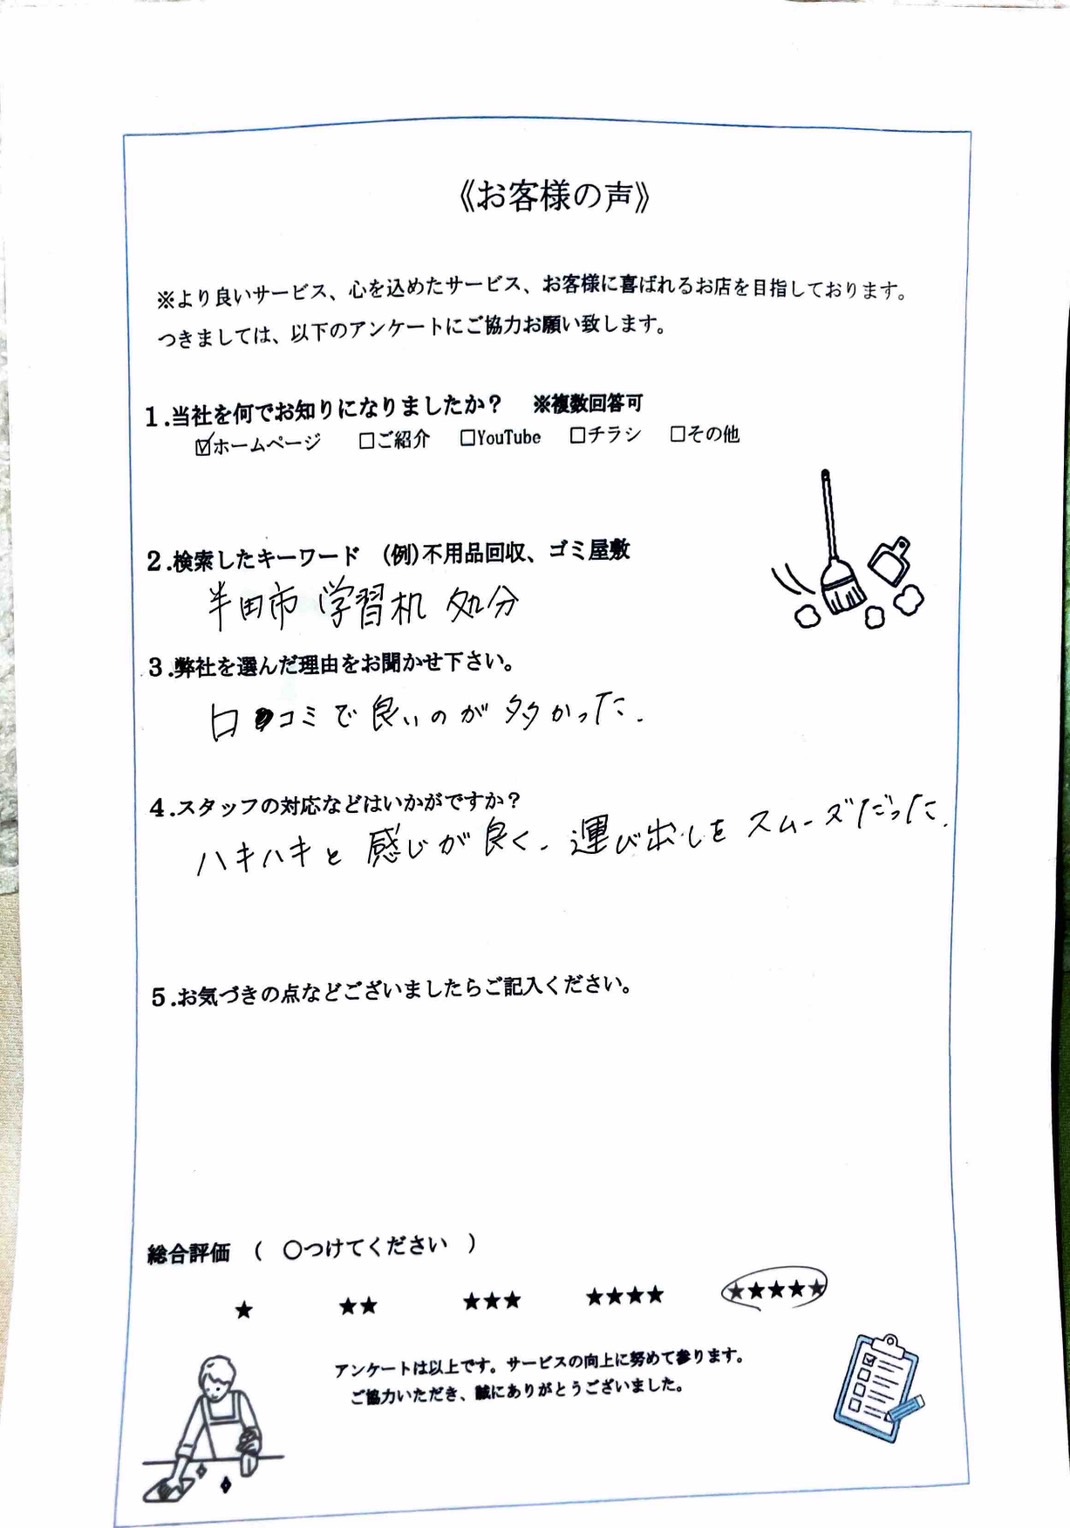 《お客様の声》
※より良いサービス、心を込めたサービス、お客様に喜ばれるお店を目指しております。
つきましては、以下のアンケートにご協力お願い致します。
1.当社を何でお知りになりましたか？ ※複数回答可
☑ホームページ □ご紹介 □YouTube □チラシ □その他
2.検索したキーワード (例)不用品回収、ゴミ屋敷
半田市 学習机 処分
3.弊社を選んだ理由をお聞かせ下さい。
口コミで良いのが多かった.
4.スタッフの対応などはいかがですか？
ハキハキと感じが良く、運び出しをスムーズだった.
5.お気づきの点などございましたらご記入ください。
総合評価 ( ○つけてください )
★ ★★ ★★★ ★★★★ ★★★★★
アンケートは以上です。サービスの向上に努めて参ります。
ご協力いただき、誠にありがとうございました。